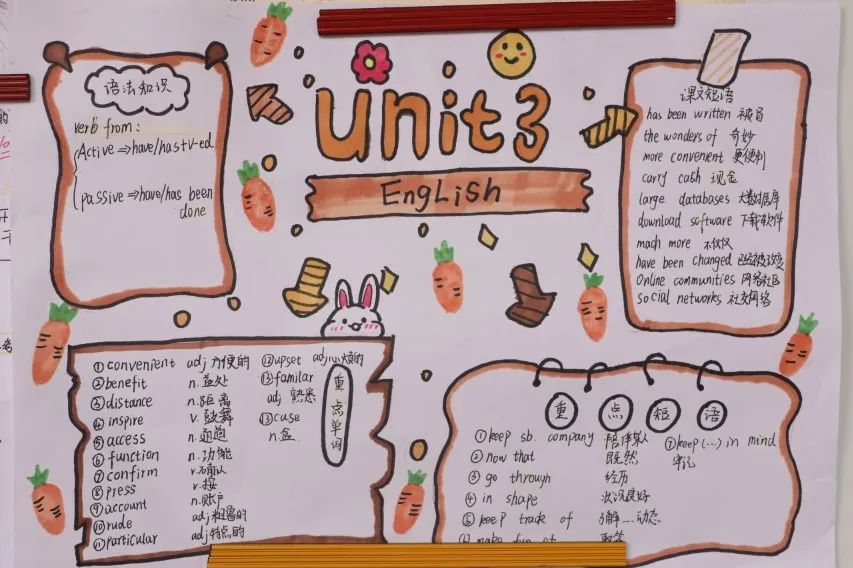 unit3
English
语法知识
verb from:
Active⇒have/has+v-ed
passive⇒have/has been
done
课文短语
has been written 被写
the wonders of 奇妙
more convenient 更便利
carry cash 现金
large databases 大数据库
download software 下载软件
mach more 不仅仅
have been changed 已经被改变
Online communities 网络社区
social networks 社交网络
重点单词
①convenient adj 方便的
②benefit n.益处
③distance n.距离
④inspire v.鼓舞
⑤access n.通道
⑥function n.功能
⑦confirm v.确认
⑧press v.按
⑨account n.账户
⑩rude adj粗鲁的
⑪particular adj特点的
⑫upset adj心烦的
⑬familar
adj 熟悉
⑬cuse
n.盒
重点短语
①keep sb. company 陪伴某人
②now that 既然
③go through 经历
④in shape 状况良好
⑤keep track of 了解...动态
⑥make fun of 取笑
⑦keep(...) in mind
牢记